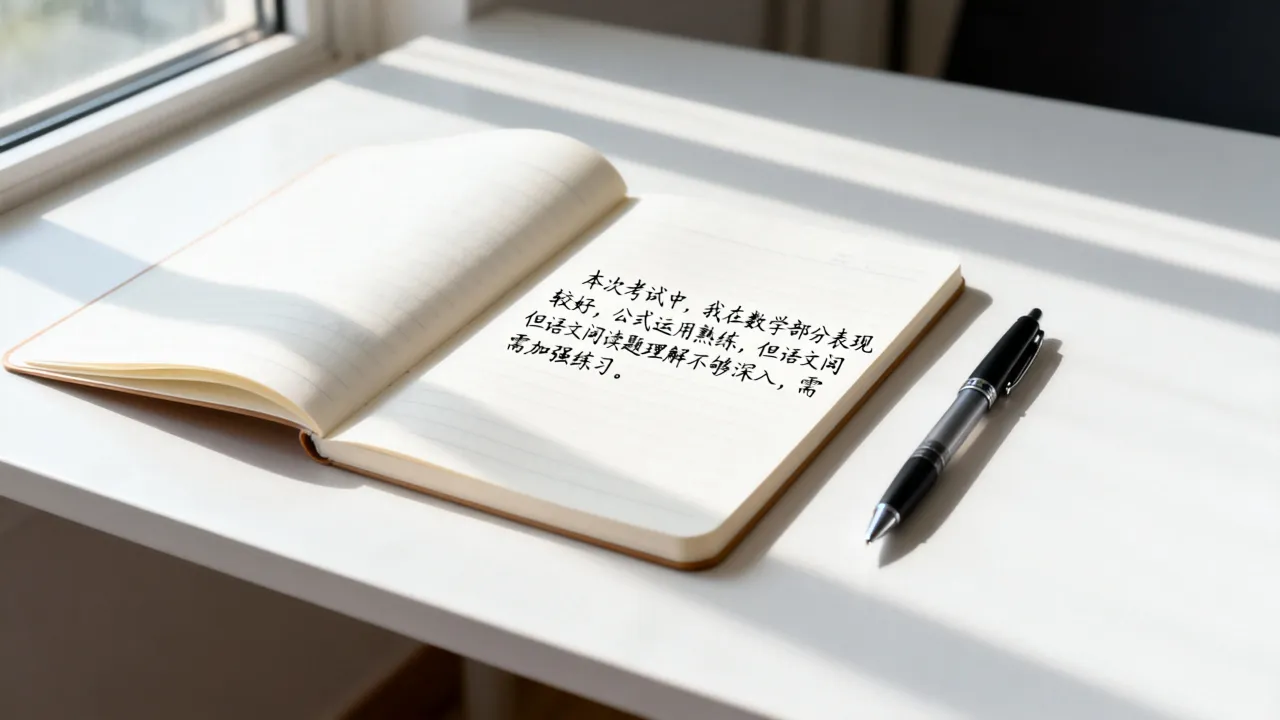 本次考试中，我在数学部分表现
较好，公式运用熟练，但语文阅
但语文阅读题理解不够深入，需
需加强练习。